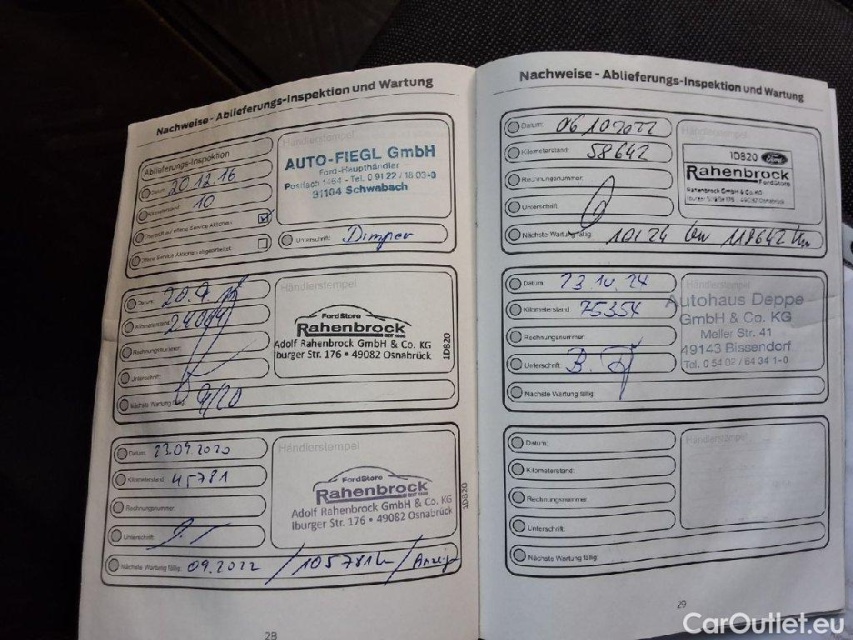 Nachweise - Ablieferungs-Inspektion und Wartung
Ablieferungs-Inspektion
Datum: 20.12.16
Kilometerstand: 10
Händlerstempel
AUTO-FIEGL GmbH
Ford-Haupthändler
Postfach 1464 - Tel. 0 91 22 / 18 03-0
91104 Schwabach
Unterschrift: Dimper
Datum: 20.9
Kilometerstand:
Rechnungsnummer:
Unterschrift:
Nächste Wartung fällig: 9/20
Händlerstempel
FordStore
Rahenbrock
Adolf Rahenbrock GmbH & Co. KG
Iburger Str. 176 • 49082 Osnabrück
1D820
Datum: 23.09.2020
Kilometerstand: 45781
Rechnungsnummer:
Unterschrift:
Nächste Wartung fällig: 09.2022 / 105781 /
Händlerstempel
FordStore
Rahenbrock
Adolf Rahenbrock GmbH & Co. KG
Iburger Str. 176 • 49082 Osnabrück
1D820
28
Nachweise - Ablieferungs-Inspektion und Wartung
Datum: 06.10.2022
Kilometerstand: 58642
Rechnungsnummer:
Unterschrift:
Nächste Wartung fällig: 10/24 118642 km
Händlerstempel
1D820 Ford
Rahenbrock
FordStore
Rahenbrock GmbH & Co. KG
Datum: 23.10.24
Kilometerstand: 75354
Rechnungsnummer:
Unterschrift:
Nächste Wartung fällig:
Händlerstempel
Autohaus Deppe
GmbH & Co. KG
Meller Str. 41
49143 Bissendorf
Tel. 0 54 02 / 64 34 1-0
Datum:
Kilometerstand:
Rechnungsnummer:
Unterschrift:
Nächste Wartung fällig:
Händlerstempel
29
CarOutlet.eu